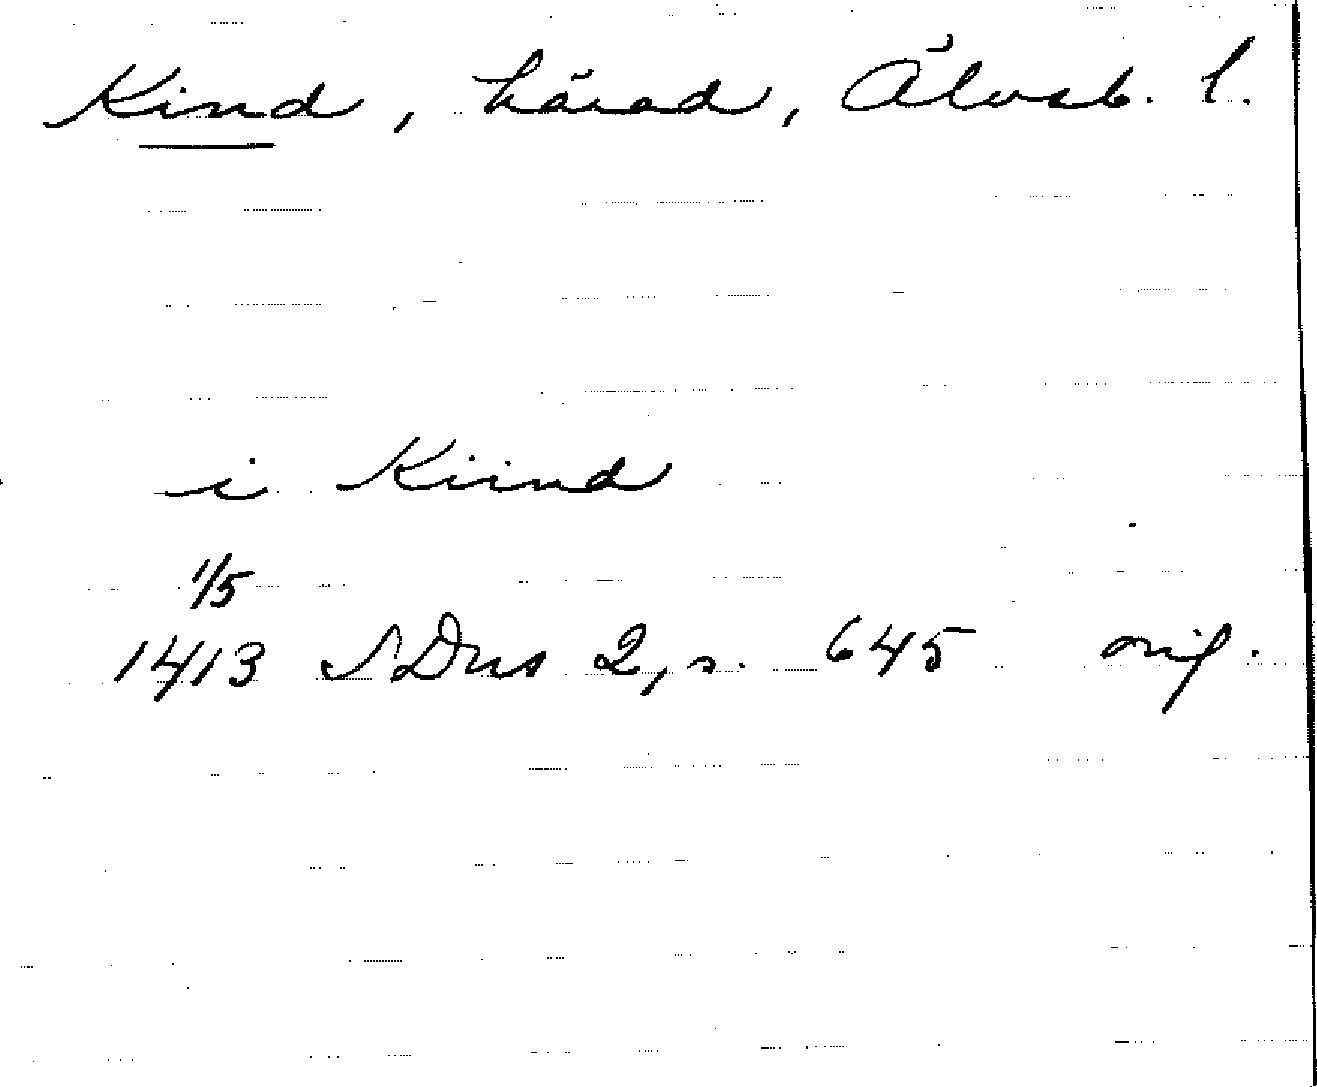 Kind, härad, Älvsb. l.
i Kiind
1/5
1413 SDns 2, s. 645 orig.